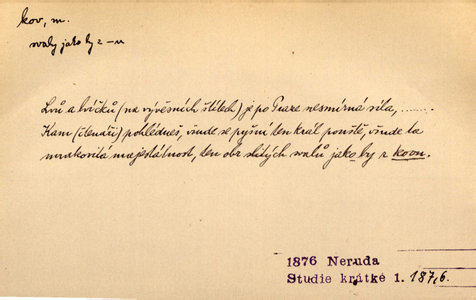 kov, m.
svaly jako by z –u
Lvů a lvíčků (na vývěsních štítech) je po Praze nesmírná síla, ........
Kam (čtenáři) pohlédneš, všude se pyšní ten král pouště, všude ta
mrakovitá majestátnost, ten obr slitých svalů jako by z kovu.
1876 Neruda
Studie krátké 1. 187,6.